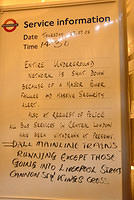 Service information
Date THURSDAY 7.07.05
Time
ENTIRE UNDERGROUND
NETWORK IS SHUT DOWN
BECAUSE OF A MAJOR POWER
FAILURE AND POSSIBLE SECURITY
ALERT.
ALSO AT REQUEST OF POLICE
ALL BUS SERVICES IN CENTRAL LONDON
HAVE BEEN WITHDRAWN AT PRESENT.
- ALL MAINLINE TRAINS
RUNNING EXCEPT THOSE
GOING INTO LIVERPOOL STREET
CANNON ST & KINGS CROSS.